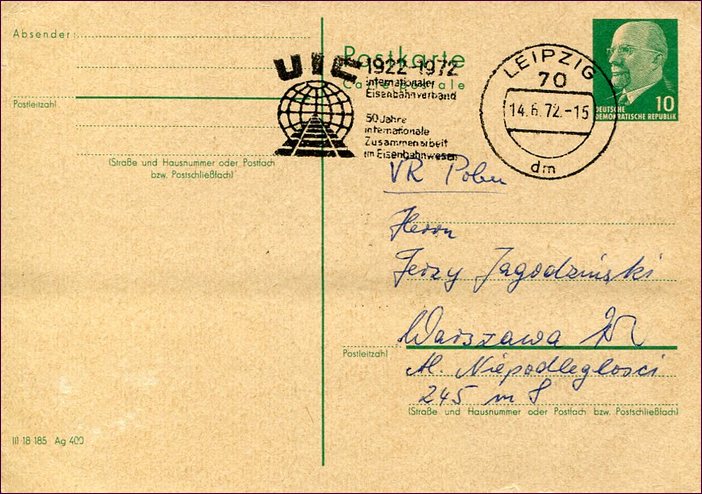 Absender:
Postleitzahl
(Straße und Hausnummer oder Postfach
bzw. Postschließfach)
III 18 185 Ag 400
Postkarte
Carte postale
UIC 1922-1972
Internationaler
Eisenbahnverband
50 Jahre
internationale
Zusammenarbeit
im Eisenbahnwesen
LEIPZIG
70
14.6.72.-15
dm
DEUTSCHE
DEMOKRATISCHE REPUBLIK
10
VR Polen
Herrn
Jerzy Jagodziński
Warszawa
Postleitzahl
Al. Niepodległości
245 m 8
(Straße und Hausnummer oder Postfach bzw. Postschließfach)